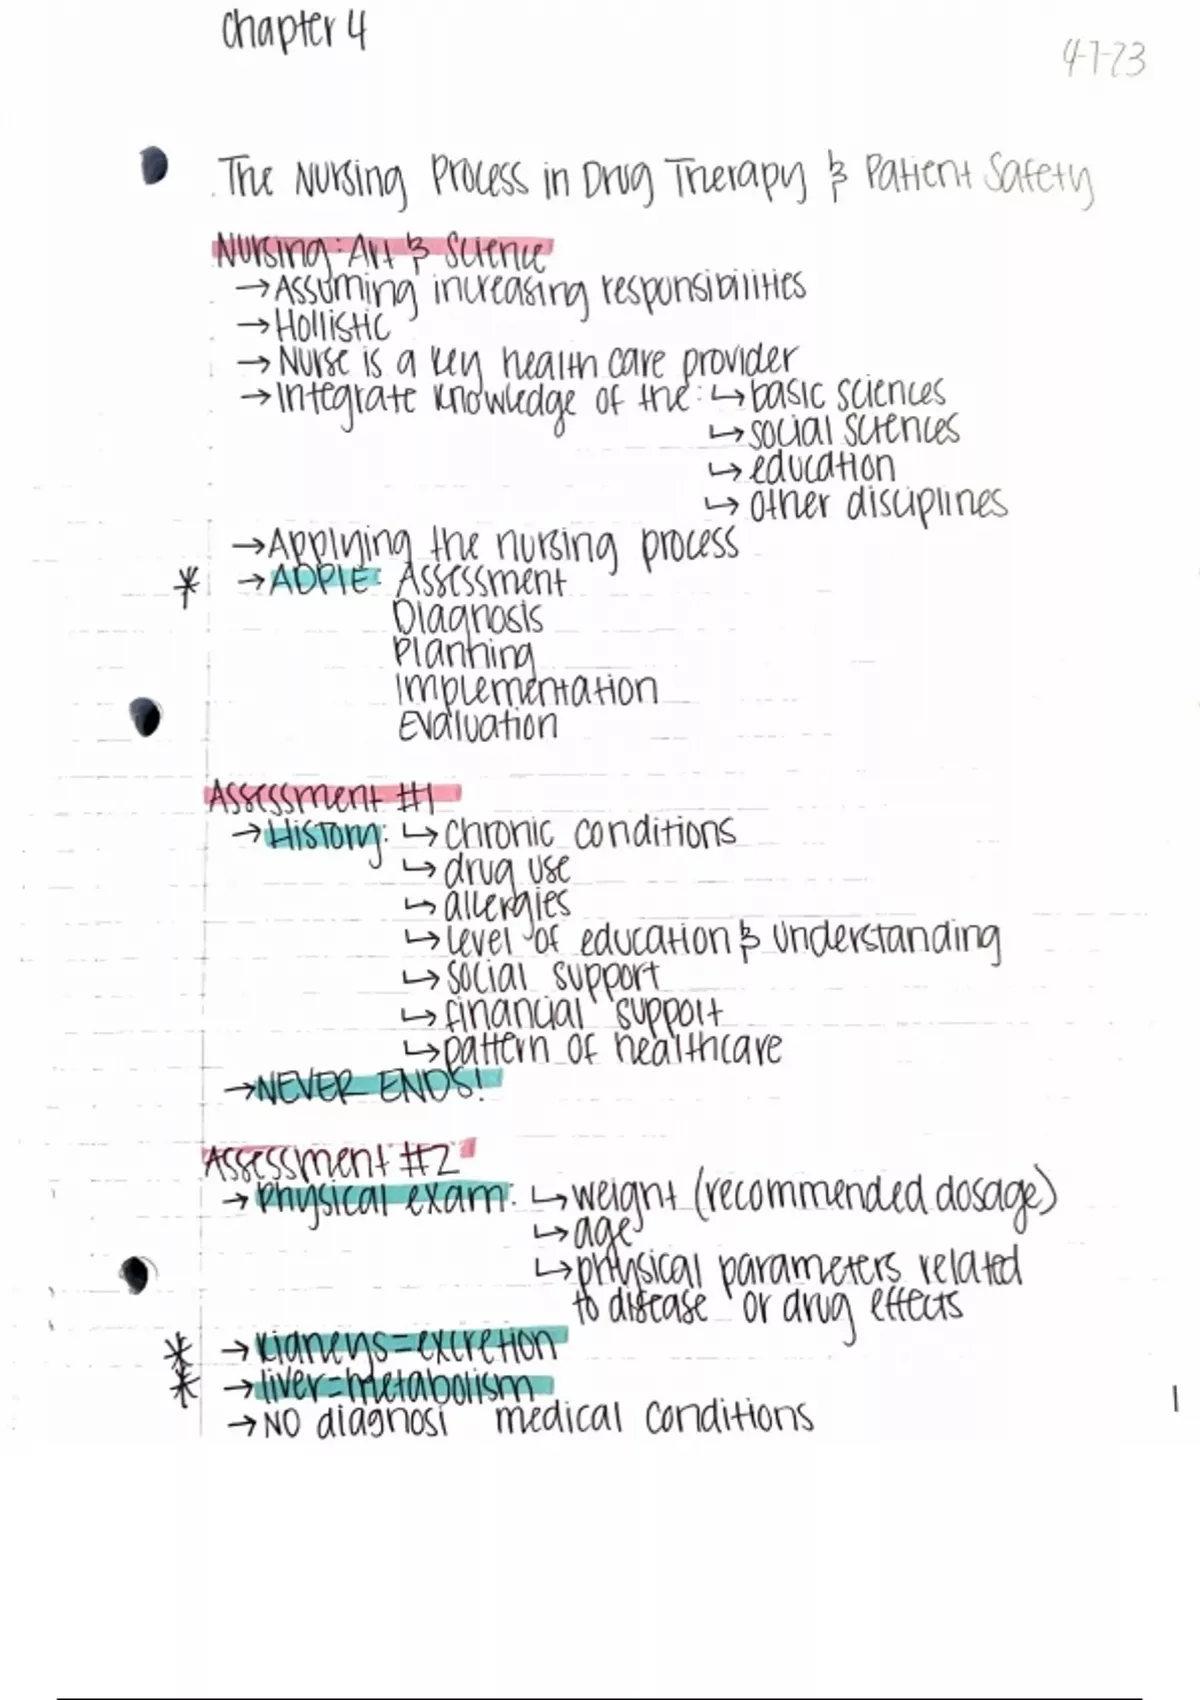 Chapter 4
4-7-23
The Nursing Process in Drug Therapy & Patient Safety
Nursing: Art & Science
→ Assuming increasing responsibilities
→ Hollistic
→ Nurse is a key health care provider
→ Integrate knowledge of the: ↳ basic sciences
↳ social sciences
↳ education
↳ other disciplines
→ Applying the nursing process
* → ADPIE: Assessment
Diagnosis
Planning
Implementation
Evaluation
Assessment #1
→ History: ↳ chronic conditions
↳ drug use
↳ allergies
↳ level of education & understanding
↳ social support
↳ financial support
↳ pattern of healthcare
→ NEVER ENDS!
Assessment #2
→ Physical exam: ↳ weight (recommended dosage)
↳ age
↳ physical parameters related
to disease or drug effects
* → kidneys = excretion
* → liver = metabolism
→ NO diagnosi medical conditions
1